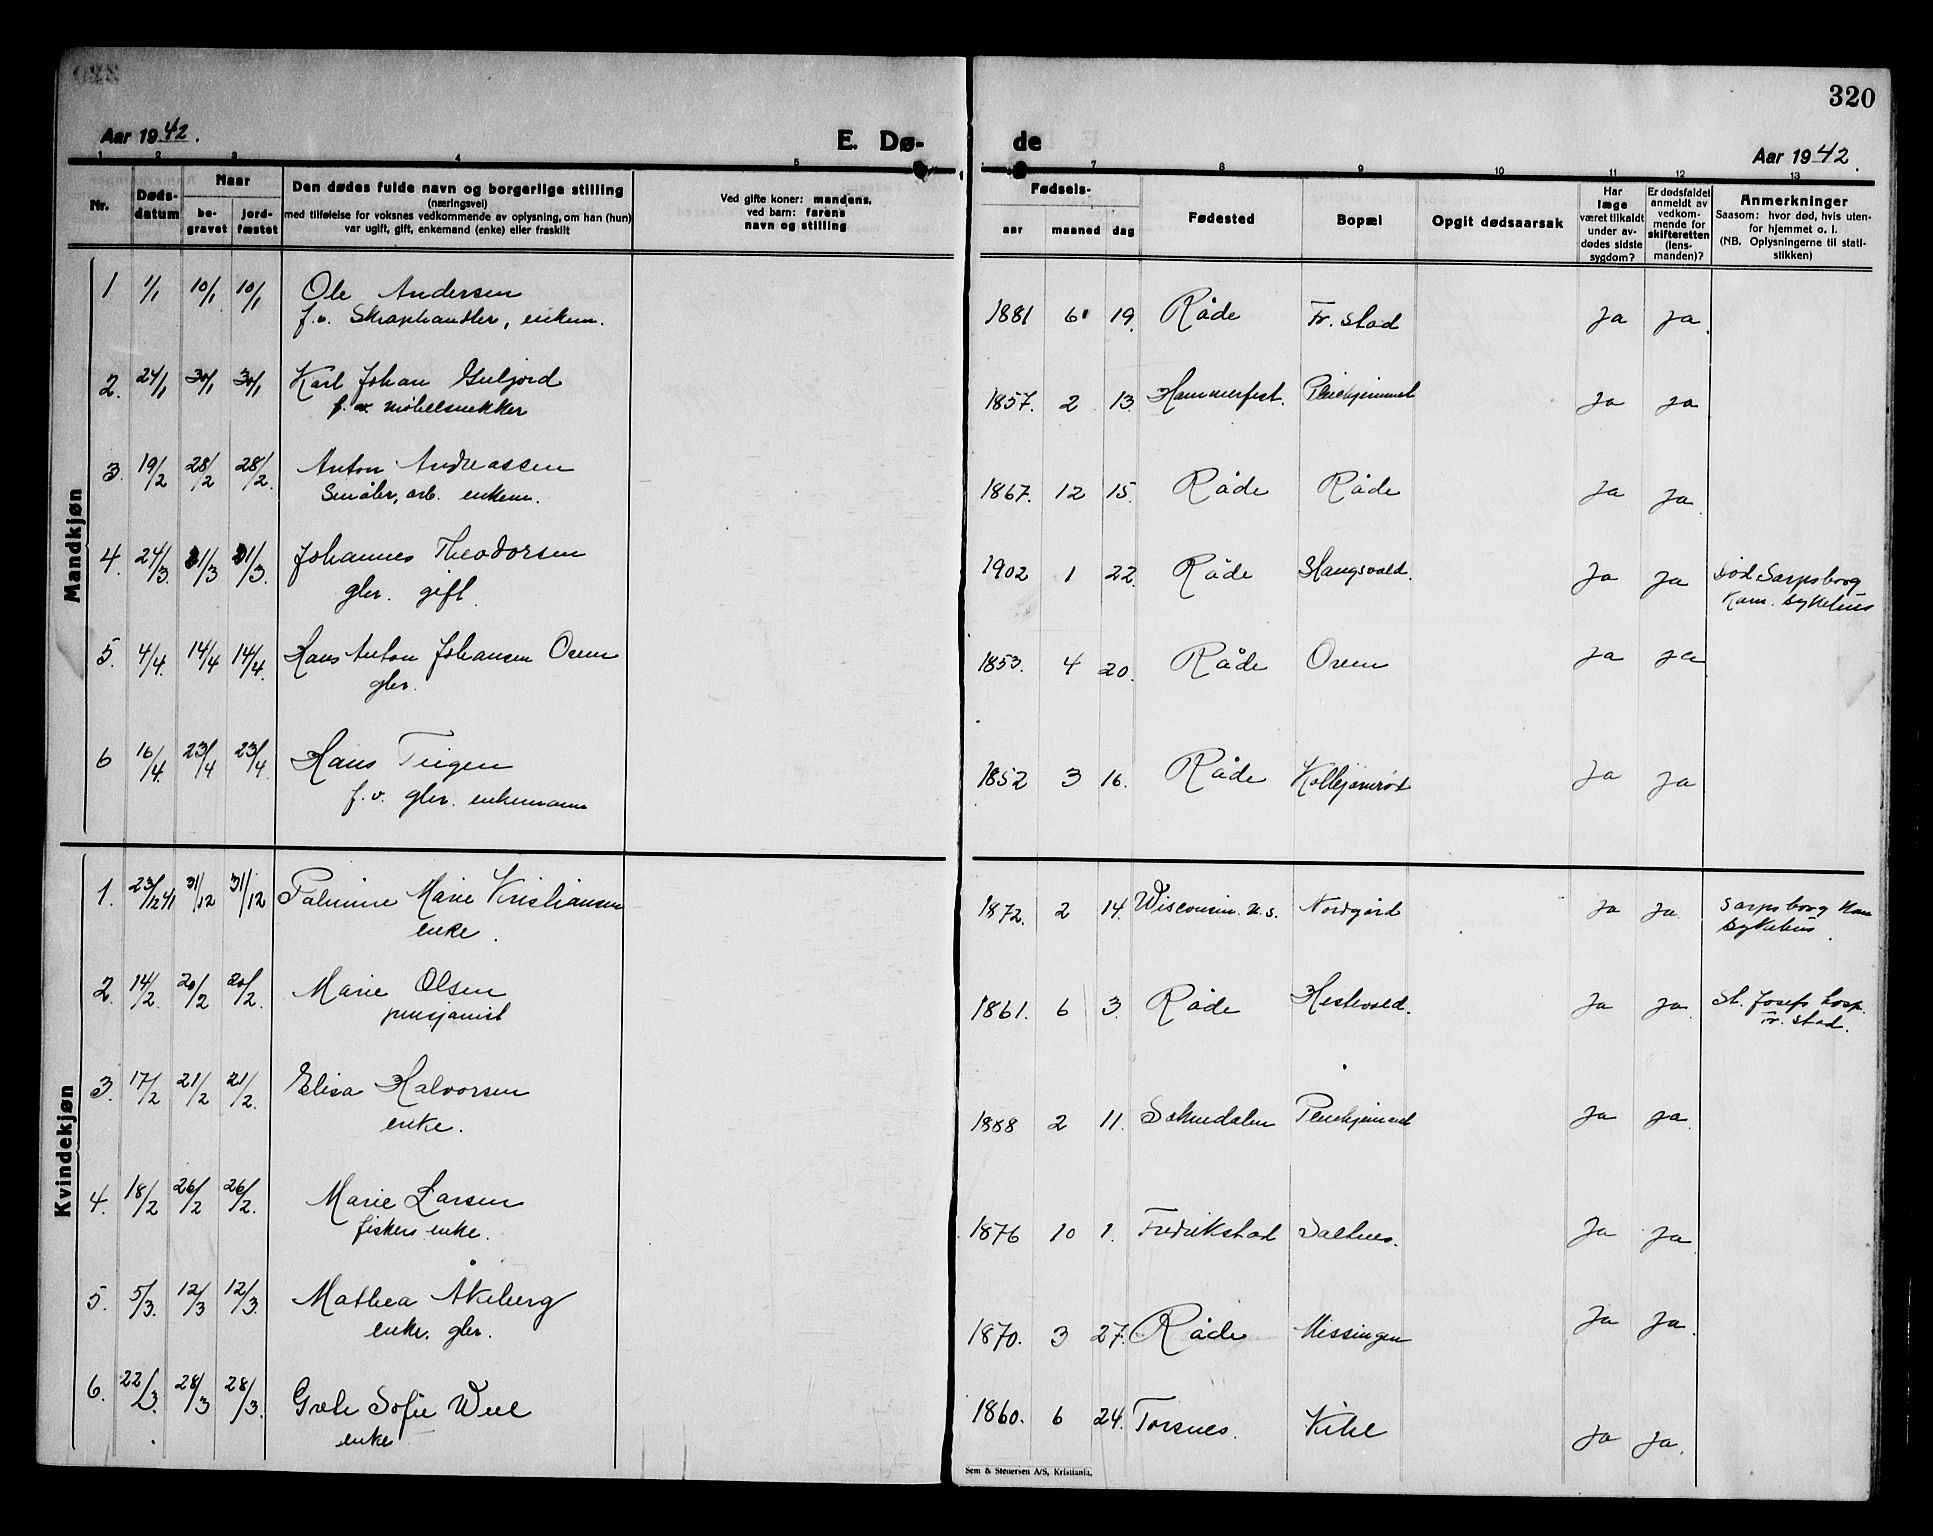 320
Aar 1942.
E. Dø-
de
Aar 1942.
1 2 3 4 5
7 8 9 10 11 12 13
Nr.
Døds-
datum
Naar
be-
gravet
jord-
fæstet
Den dødes fulde navn og borgerlige stilling
(næringsvei)
med tilføielse for voksnes vedkommende av oplysning, om han (hun)
var ugift, gift, enkemand (enke) eller fraskilt
Ved gifte koner: mandens,
ved barn: farens
navn og stilling
Fødsels-
aar maaned dag
Fødested
Bopæl
Opgit dødsaarsak
Har
læge
været tilkaldt
under av-
dødes sidste
sygdom?
Er dødsfaldet
anmeldt av
vedkom-
mende for
skifteretten
(lens-
manden)?
Anmerkninger
Saasom: hvor død, hvis uten-
for hjemmet o. l.
(NB. Oplysningerne til stati-
stikken)
Mandkjøn
1 1/1 10/1 10/1 Ole Andersen
f.v. Skraphandler, enkem.
1881 6 19. Råde Fr.stad Ja Ja.
2. 24/1 30/1 30/1 Karl Johan Guljord
f.v. møbelsnekker
1857. 2 13. Hammerfest. Pleiehjemmet Ja Ja
3. 19/2 28/2 28/2. Anton Andreassen
Småbr, arb. enkem.
1867. 12 15. Råde Råde Ja Ja.
4. 24/3. 31/3 31/3. Johannes Theodorsen
gbr. gift.
1902 1 22. Råde Slangsvold. Ja Ja Død Sarpsborg
Kom. sykehus
5. 4/4. 14/4 14/4. Hans Anton Johansen Oven
gbr.
1853. 4 20. Råde Oven Ja Ja
6 16/4. 23/4 23/4. Hans Teigen
f.v. gbr. enkemann
1852 3 16. Råde Ja Ja
Kvindekjøn
1. 23/12 41 31/12 31/12 Palmine Marie Kristiansen
enke.
1872. 2 14. Wisconsin. U.S. Nordgård Ja Ja Sarpsborg Kom
Sykehus.
2. 14/2. 20/2 20/2. Marie Olsen
pensjonist
1861. 6 3. Råde Hestevold. Ja Ja. St. Josefs hosp.
Fr.stad.
3. 17/2 21/2 21/2. Elisa Halvorsen
enke.
1868 2 11. Soknedalen Pleiehjemmet Ja Ja.
4. 18/2 26/2 26/2. Marie Larsen
fiskers enke.
1876 10 1. Fredrikstad Saltnes. Ja Ja.
5. 5/3. 12/3 12/3. Mathea Åkeberg
enke. gbr.
1870. 3 27. Råde Missingen Ja Ja.
6. 22/3. 28/3 28/3. Grete Sofie Weel
enke
1860. 6 24. Torsnes. Kihl Ja Ja.
Sem & Stenersen A/S, Kristiania.